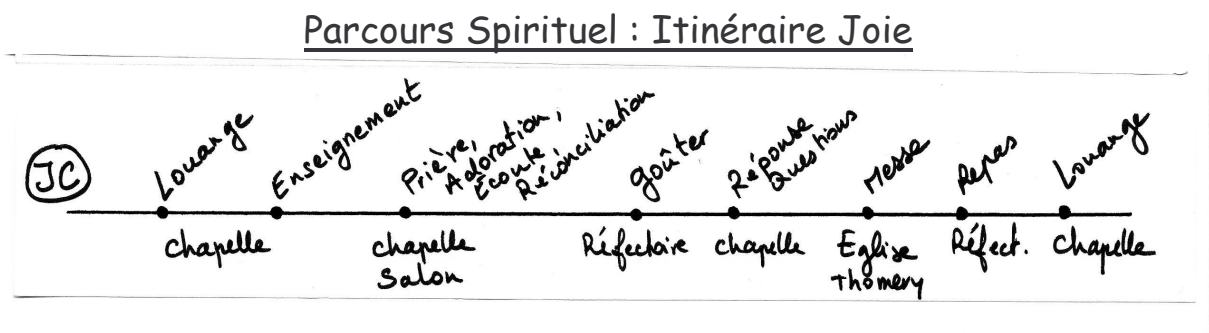 Parcours Spirituel : Itinéraire Joie
JC
Louange
Enseignement
Prière,
Adoration,
Écoute
Réconciliation
goûter
Réponse
Questions
Messe
Repas
Louange
chapelle
chapelle
Salon
Réfectoire
chapelle
Eglise
Thomery
Réfect.
chapelle